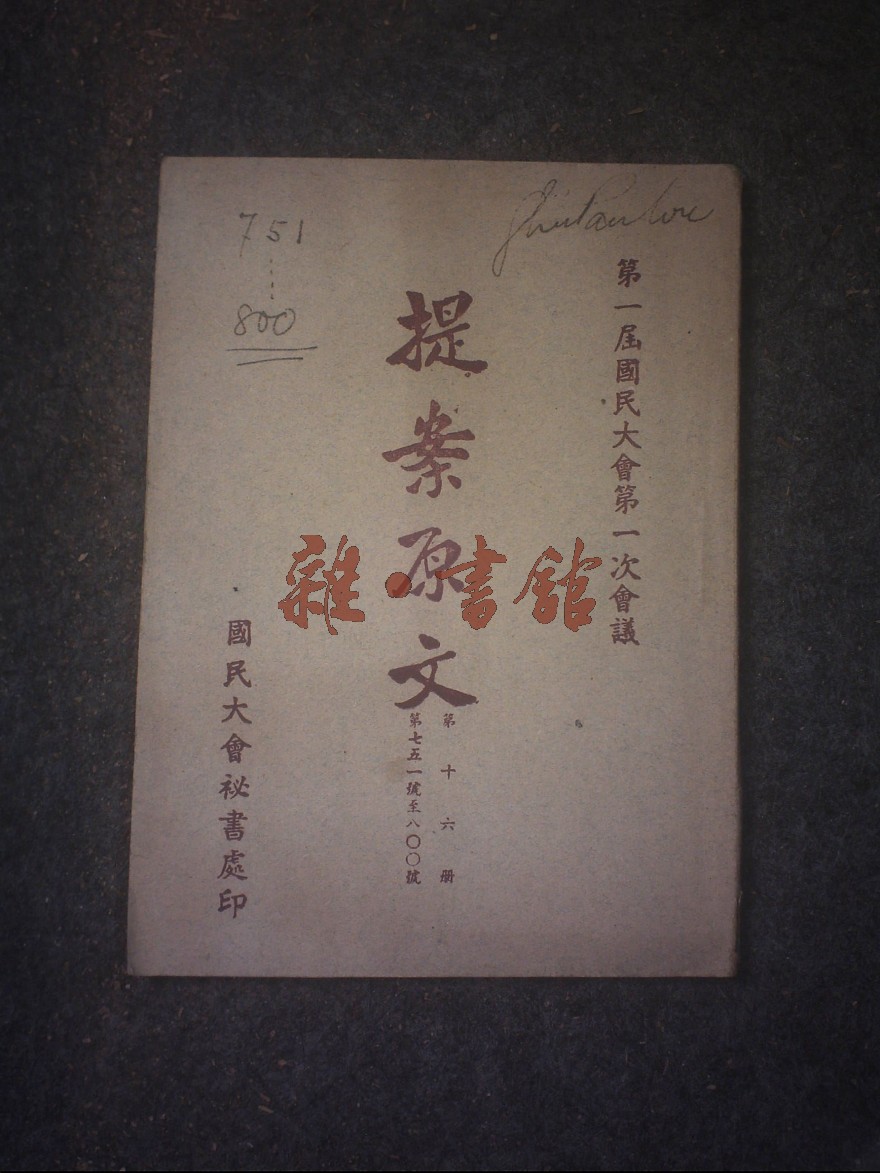 第一屆國民大會第一次會議
提案原文
第十六册
第七五一號至八〇〇號
國民大會祕書處印
751
800
雜·書館